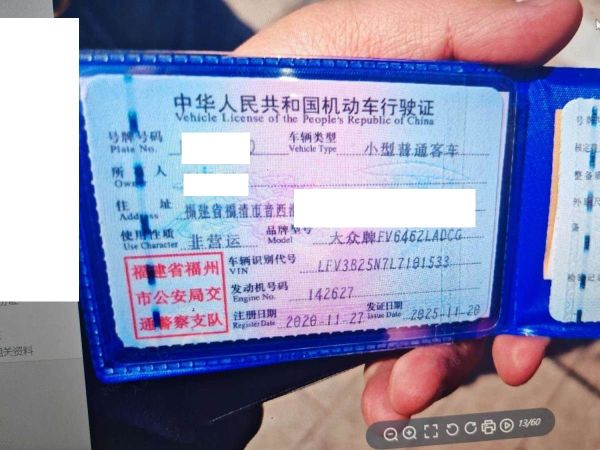 中华人民共和国机动车行驶证
Vehicle License of the People's Republic of China
号牌号码
Plate No.
车辆类型
Vehicle Type
小型普通客车
所 人
Owner
住 址
Address
福建省福清市音西
使用性质
Use Character
非营运
品牌型号
Model
大众牌FV6462LADCG
福建省福州
市公安局交
通警察支队
车辆识别代号
VIN
LFV3B25N7L7101533
发动机号码
Engine No.
142627
注册日期
Register Date
2020-11-27
发证日期
Issue Date
2025-11-20
相关资料
13/60